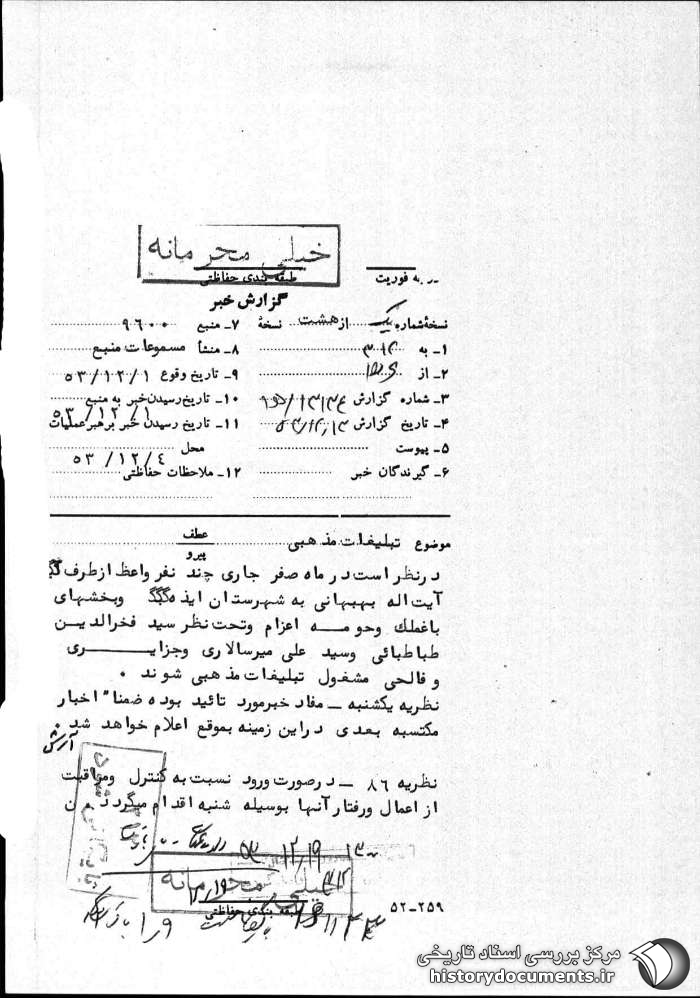 خیلی محرمانه
طبقه بندی حفاظتی
به فوریت
گزارش خبر
نسخهٔ شماره یک از هشت نسخهٔ
۱ـ به ۳۱۲
۲ـ از
۳ـ شماره گزارش
۴ـ تاریخ گزارش
۵ـ پیوست
۶ـ گیرندگان خبر
۷ـ منبع ۹۶۰۰
۸ـ منشأ مسموعات منبع
۹ـ تاریخ وقوع ۵۳/۱۲/۱
۱۰ـ تاریخ رسیدن خبر به منبع ۵۳/۱۲/۱
۱۱ـ تاریخ رسیدن خبر برهبر عملیات
محل ۵۳/۱۲/٤
۱۲ـ ملاحظات حفاظتی
موضوع تبلیغات مذهبی
عطف
پیرو
درنظر است در ماه صفر جاری چند نفر واعظ ازطرف
آیت اله بهبهانی به شهرستان ایذه وبخشهای
باغملك وحومـــه اعزام وتحت نظر سید فخرالدیـن
طباطبائی وسید علی میرسالاری وجزایـــری
و فالحی مشغول تبلیغات مذهبی شوند .
نظریه یکشنبه ـ مفاد خبرمورد تائید بوده ضمنا" اخبار
مکتسبه بعدی دراین زمینه بموقع اعلام خواهد شد .
آرش
نظریه ۸۶ ـ درصورت ورود نسبت به کنترل ومراقبت
از اعمال ورفتار آنها بوسیله شنبه اقدام میگردد
بایگانی شود
۵۳ ۱۲/۱۹
خیلی محرمانه
طبقه بندی حفاظتی
۵۲-۲۵۹
مرکز بررسی اسناد تاریخی
historydocuments.ir